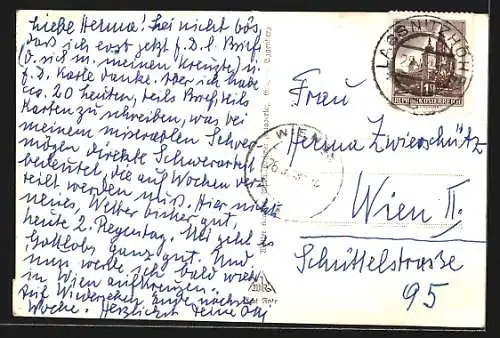 Liebe Herma! Sei nicht bös,
daß ich erst jetzt f. D. l. Brief
(D. sich m. meinen kreuzte) u.
f. D. Karte danke. Aber ich habe
ca. 20 Leuten, teils Brief, teils
Karten zu schreiben, was bei
meinem miserablen Schreibver-
mögen direkte Schwerarbeit
bedeutet, die auf Wochen ver-
teilt werden muß. Hier nichts
neues, Wetter bisher gut,
heute 2. Regentag. Mir geht es
Gottlob ganz gut. Und
nun werde ich bald wieder
in Wien aufkreuzen.
Auf Wiedersehen Ende nächster
Woche. Herzlichst Deine
LASSNITZHÖHE
REPUBLIK ÖSTERREICH
WIEN
Frau
Herma Zwierschütz
Wien II.
Schüttelstrasse
95